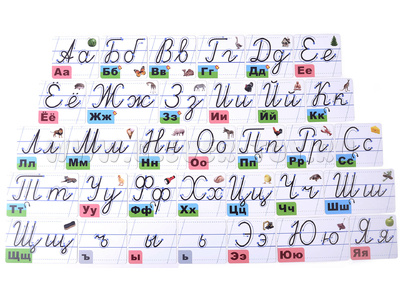 Аа Бб Вв Гг Дд Ее
Аа Бб Вв Гг Дд Ее
Ёё Жж Зз Ии Йй Кк
Ёё Жж Зз Ии Йй Кк
Лл Мм Нн Оо Пп Рр Сс
Лл Мм Нн Оо Пп Рр Сс
Тт Уу Фф Хх Цц Чч Шш
Тт Уу Фф Хх Цц Чч Шш
Щщ ъ ы ь Ээ Юю Яя
Щщ ъ ы ь Ээ Юю Яя